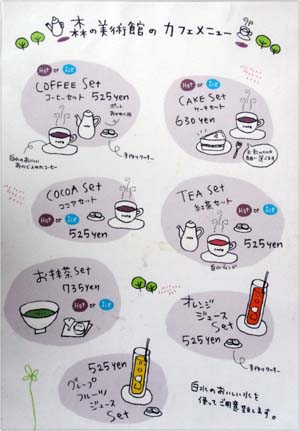 森の美術館のカフェメニュー
Hot or Ice
COFFEE Set
コーヒーセット 525yen
ポット
Hot or Ice
CAKE Set
ケーキセット
630yen
手作りクッキー
COCOA Set
ココアセット
Hot or Ice
525yen
TEA Set
紅茶セット
Hot or Ice
525yen
お抹茶Set
735yen
Hot or Ice
オレンジ
ジュース
Set
525yen
手作りクッキー
525yen
グレープ
フルーツ
ジュース
Set
白水のおいしい水を
使ってご用意致します。